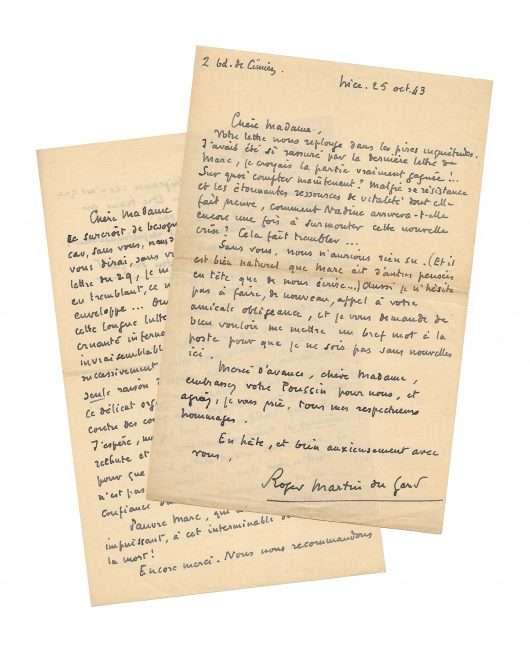 2 bd. de Cimiez.
Nice. 25 oct. 43
Chère Madame,
Votre lettre nous replonge dans les pires inquiétudes.
J'avais été si rassuré par la dernière lettre de
Marc, je croyais la partie vraiment gagnée!..
Sur quoi compter maintenant? Malgré sa résistance
et les étonnantes ressources de vitalité dont elle
fait preuve, comment Nadine arrivera-t-elle
encore une fois à surmonter cette nouvelle
crise? Cela fait trembler...
Sans vous, nous n'aurions rien su. (Et il
est bien naturel que Marc ait d'autres pensées
en tête que de nous écrire...) Aussi je n'hésite
pas à faire, de nouveau, appel à votre
amicale obligeance, et je vous demande de
bien vouloir me mettre un bref mot à la
poste pour que je ne sois pas sans nouvelles
ici.
Merci d'avance, chère Madame,
embrassez votre Poussin pour nous, et
agréez, je vous prie, tous mes respectueux
hommages.
En hâte, et bien anxieusement avec
vous,
Roger Martin du Gard
Chère Madame
ce surcroît de besogne
car, sans vous, nous
vous dirai, sans
lettre du 29, je
en tremblant, ce
enveloppe...
cette longue lutte
cruauté infernale
invraisemblable
successivement
seule raison
ce délicat
contre des
J'espère,
rechute et
pour que
n'est pas
confiance
Pauvre Marc, qui
impuissant, à cet interminable
la mort!
Encore merci. Nous nous recommandons